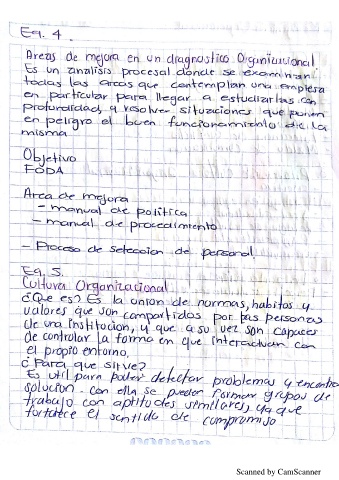 Eq. 4.
Areas de mejora en un diagnostico Organizacional
Es un analisis procesal donde se examinan
todas las areas que contemplan una empresa
en particular para llegar a estudiarlas con
profundidad, a resolver situaciones que ponen
en peligro el buen funcionamiento de la
misma
Objetivo
FODA
Area de mejora
- manual de politica
- manual de procedimiento
- Proceso de seleccion de personal
Eq. 5.
Cultura Organizacional
¿Que es? Es la union de normas, habitos y
valores que son compartidos por las personas
de una institucion, y que a su vez son capaces
de controlar la forma en que interactuan con
el propio entorno.
¿Para que sirve?
Es util para poder detectar problemas y encontrar
solucion. Con ella se pueden formar grupos de
trabajo con aptitudes similares, ya que
fortalece el sentido de compromiso
Scanned by CamScanner